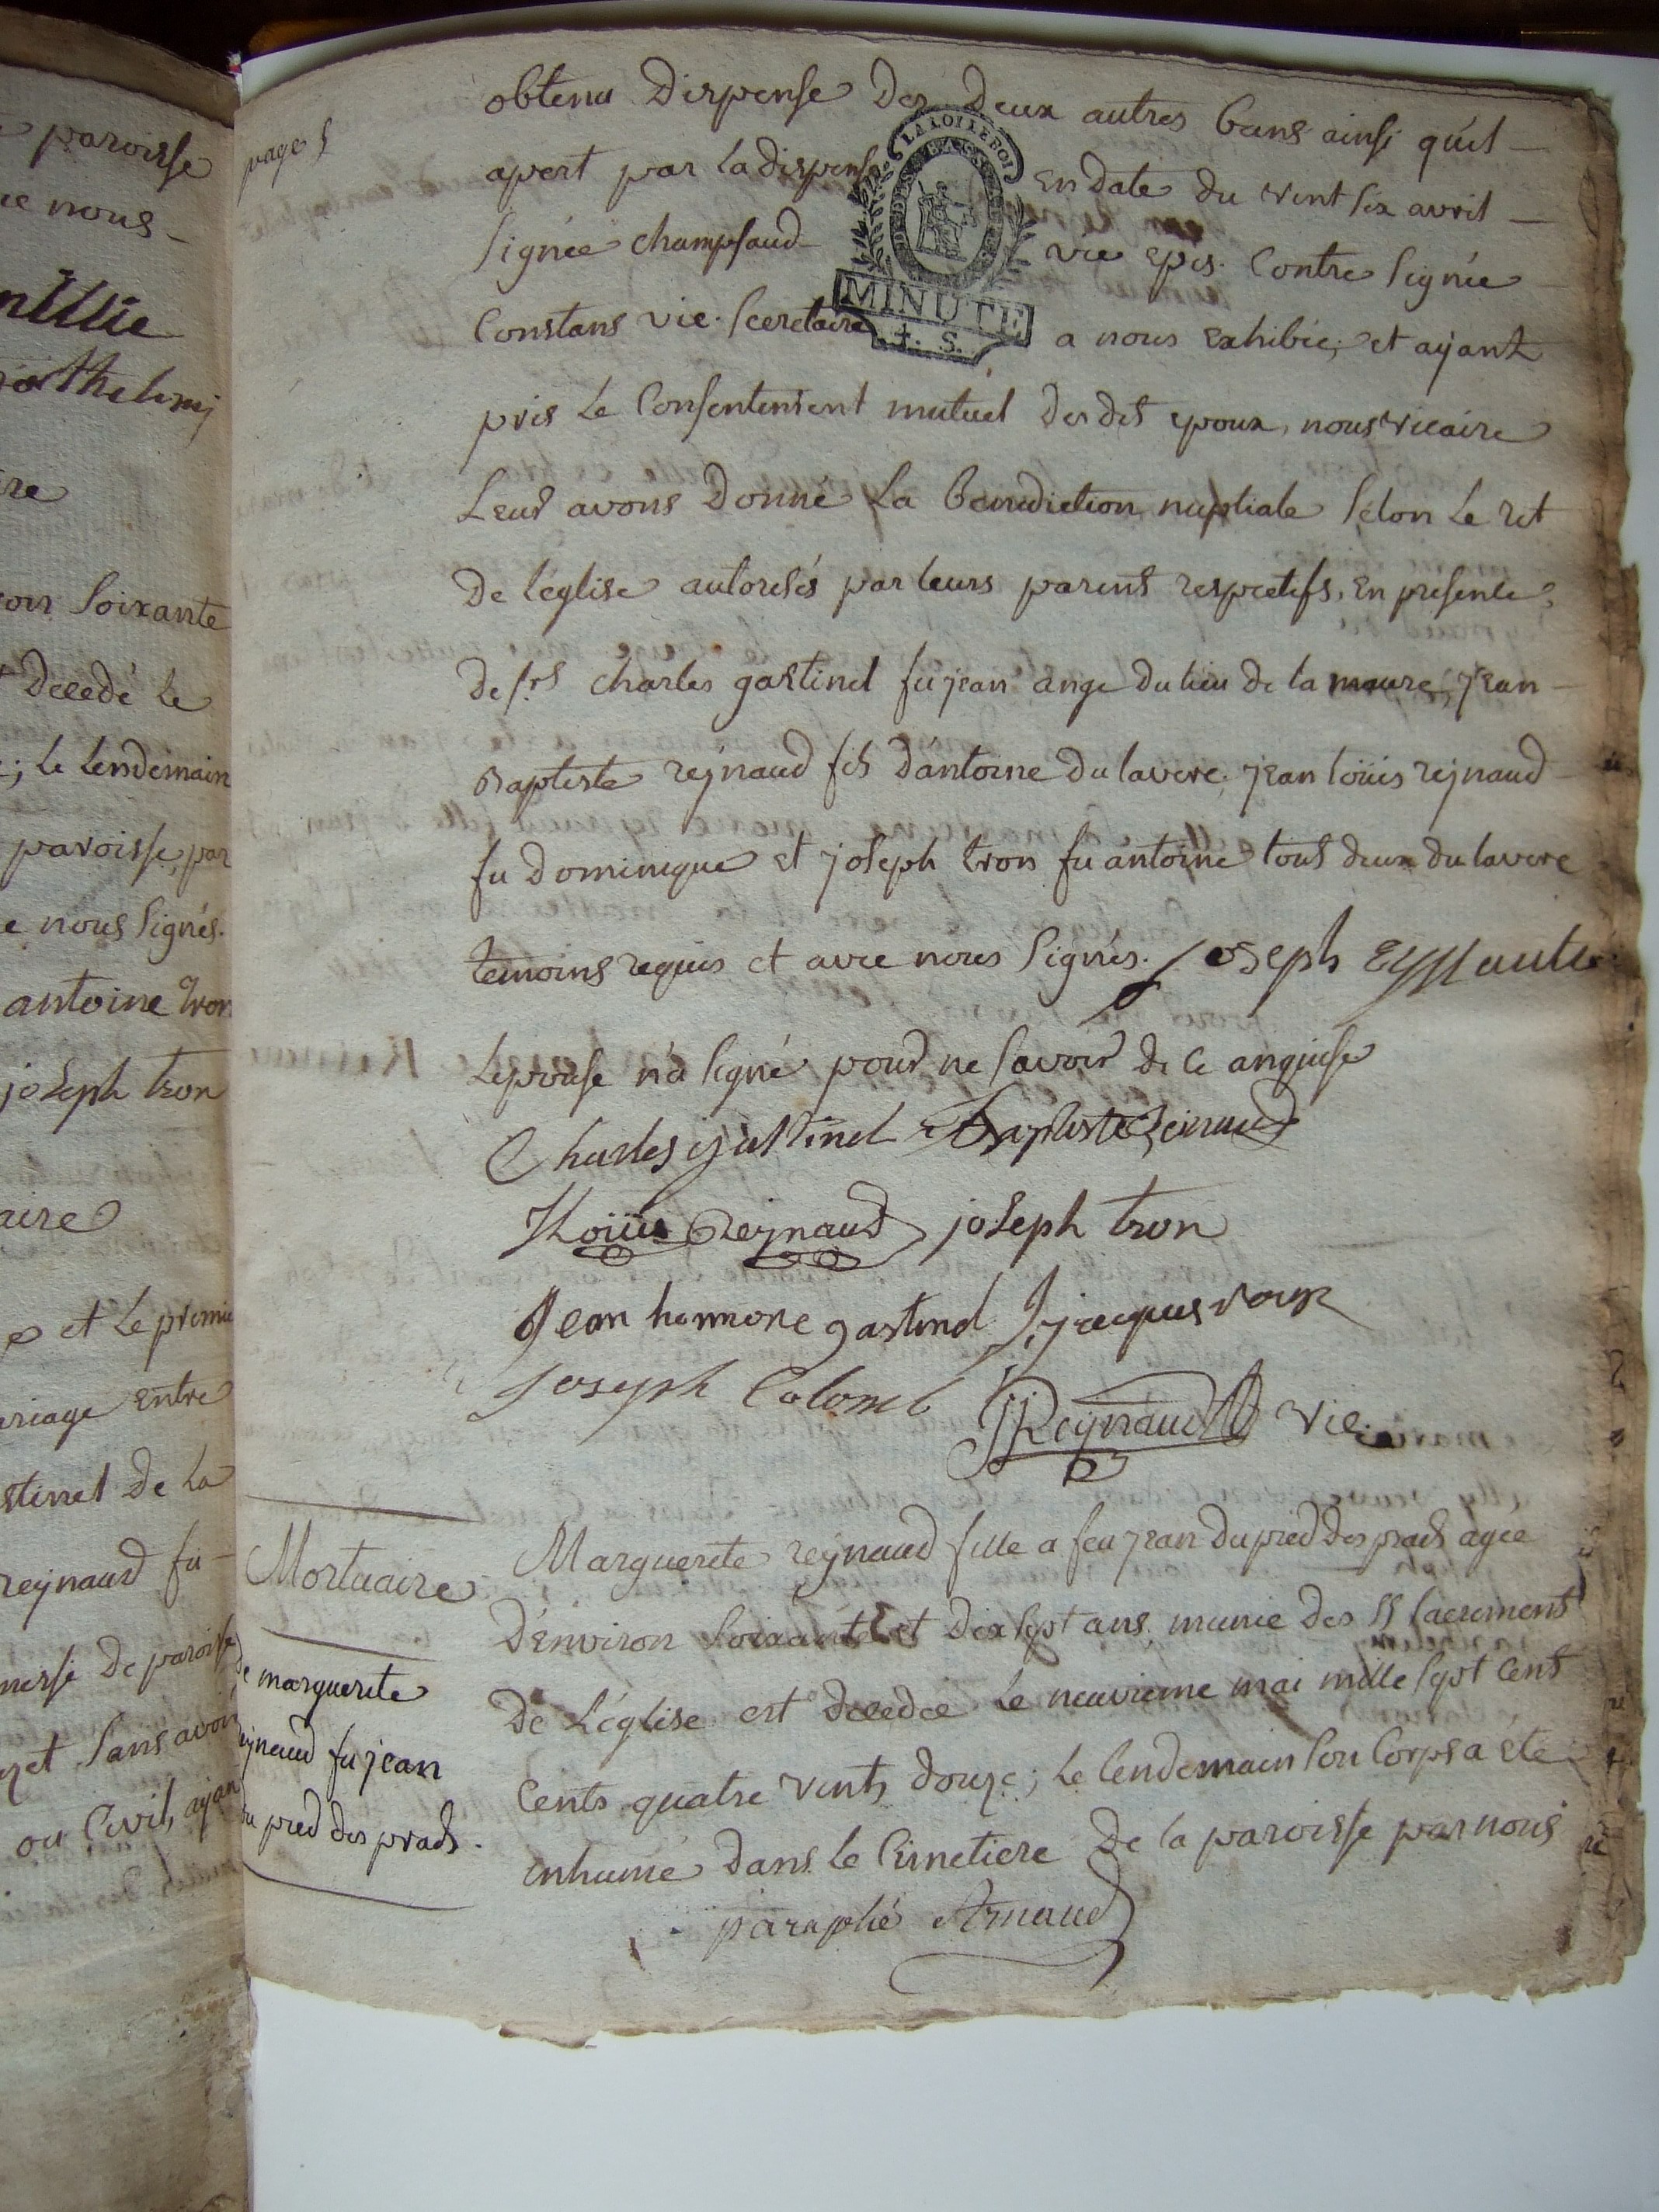 paroisse
nous
soixante
decedé le
; le lendemain
paroisse, par
nous signés.
antoine tron
joseph tron
et le premier
entre
de la
reynaud fu
de paroisse
sans avoir
ou Civil, ayan
page 5
obtenu Dispense Des Deux autres bans ainsi quil
apert par la dispense En date du vint six avril
signée champsaud vic epis. Contre signée
Constans vic. secretaire a nous Exhibée; et ayant
LA LOI LE ROI
MINUTE
+. S.
pris le Consentement mutuel des dits epoux, nous vicaire
Leur avons Donné La benediction nuptiale selon Le rit
De l'eglise autorisés par leurs parens respectifs, En presence
De srs charles gastinel fu jean ange du lieu de la maure, jean
Baptiste reynaud fils d'antoine du lavere, jean loüis reynaud
fu Dominique et joseph tron fu antoine tous deux du lavere
temoins requis et avec nous signés. joseph
L'epouse n'a signé pour ne savoir de ce enquise
Charles gastinel Baptiste Reinaud
Loüis Reynaud joseph tron
Jean honnore gastinel jacques roux
joseph Colomb JReynaud vic.
Mortuaire
de marguerite
reynaud fu jean
du pied des prads.
Marguerite reynaud fille a feu jean du pied des prads agée
D'environ soixante et dix sept ans munie des SS sacrements
De L'eglise est decedée le neuvieme mai mille sept cent
Cents quatre vints douze; le lendemain son Corps a été
enhumé dans le Cimetiere De la paroisse par nous
paraphé Arnaud